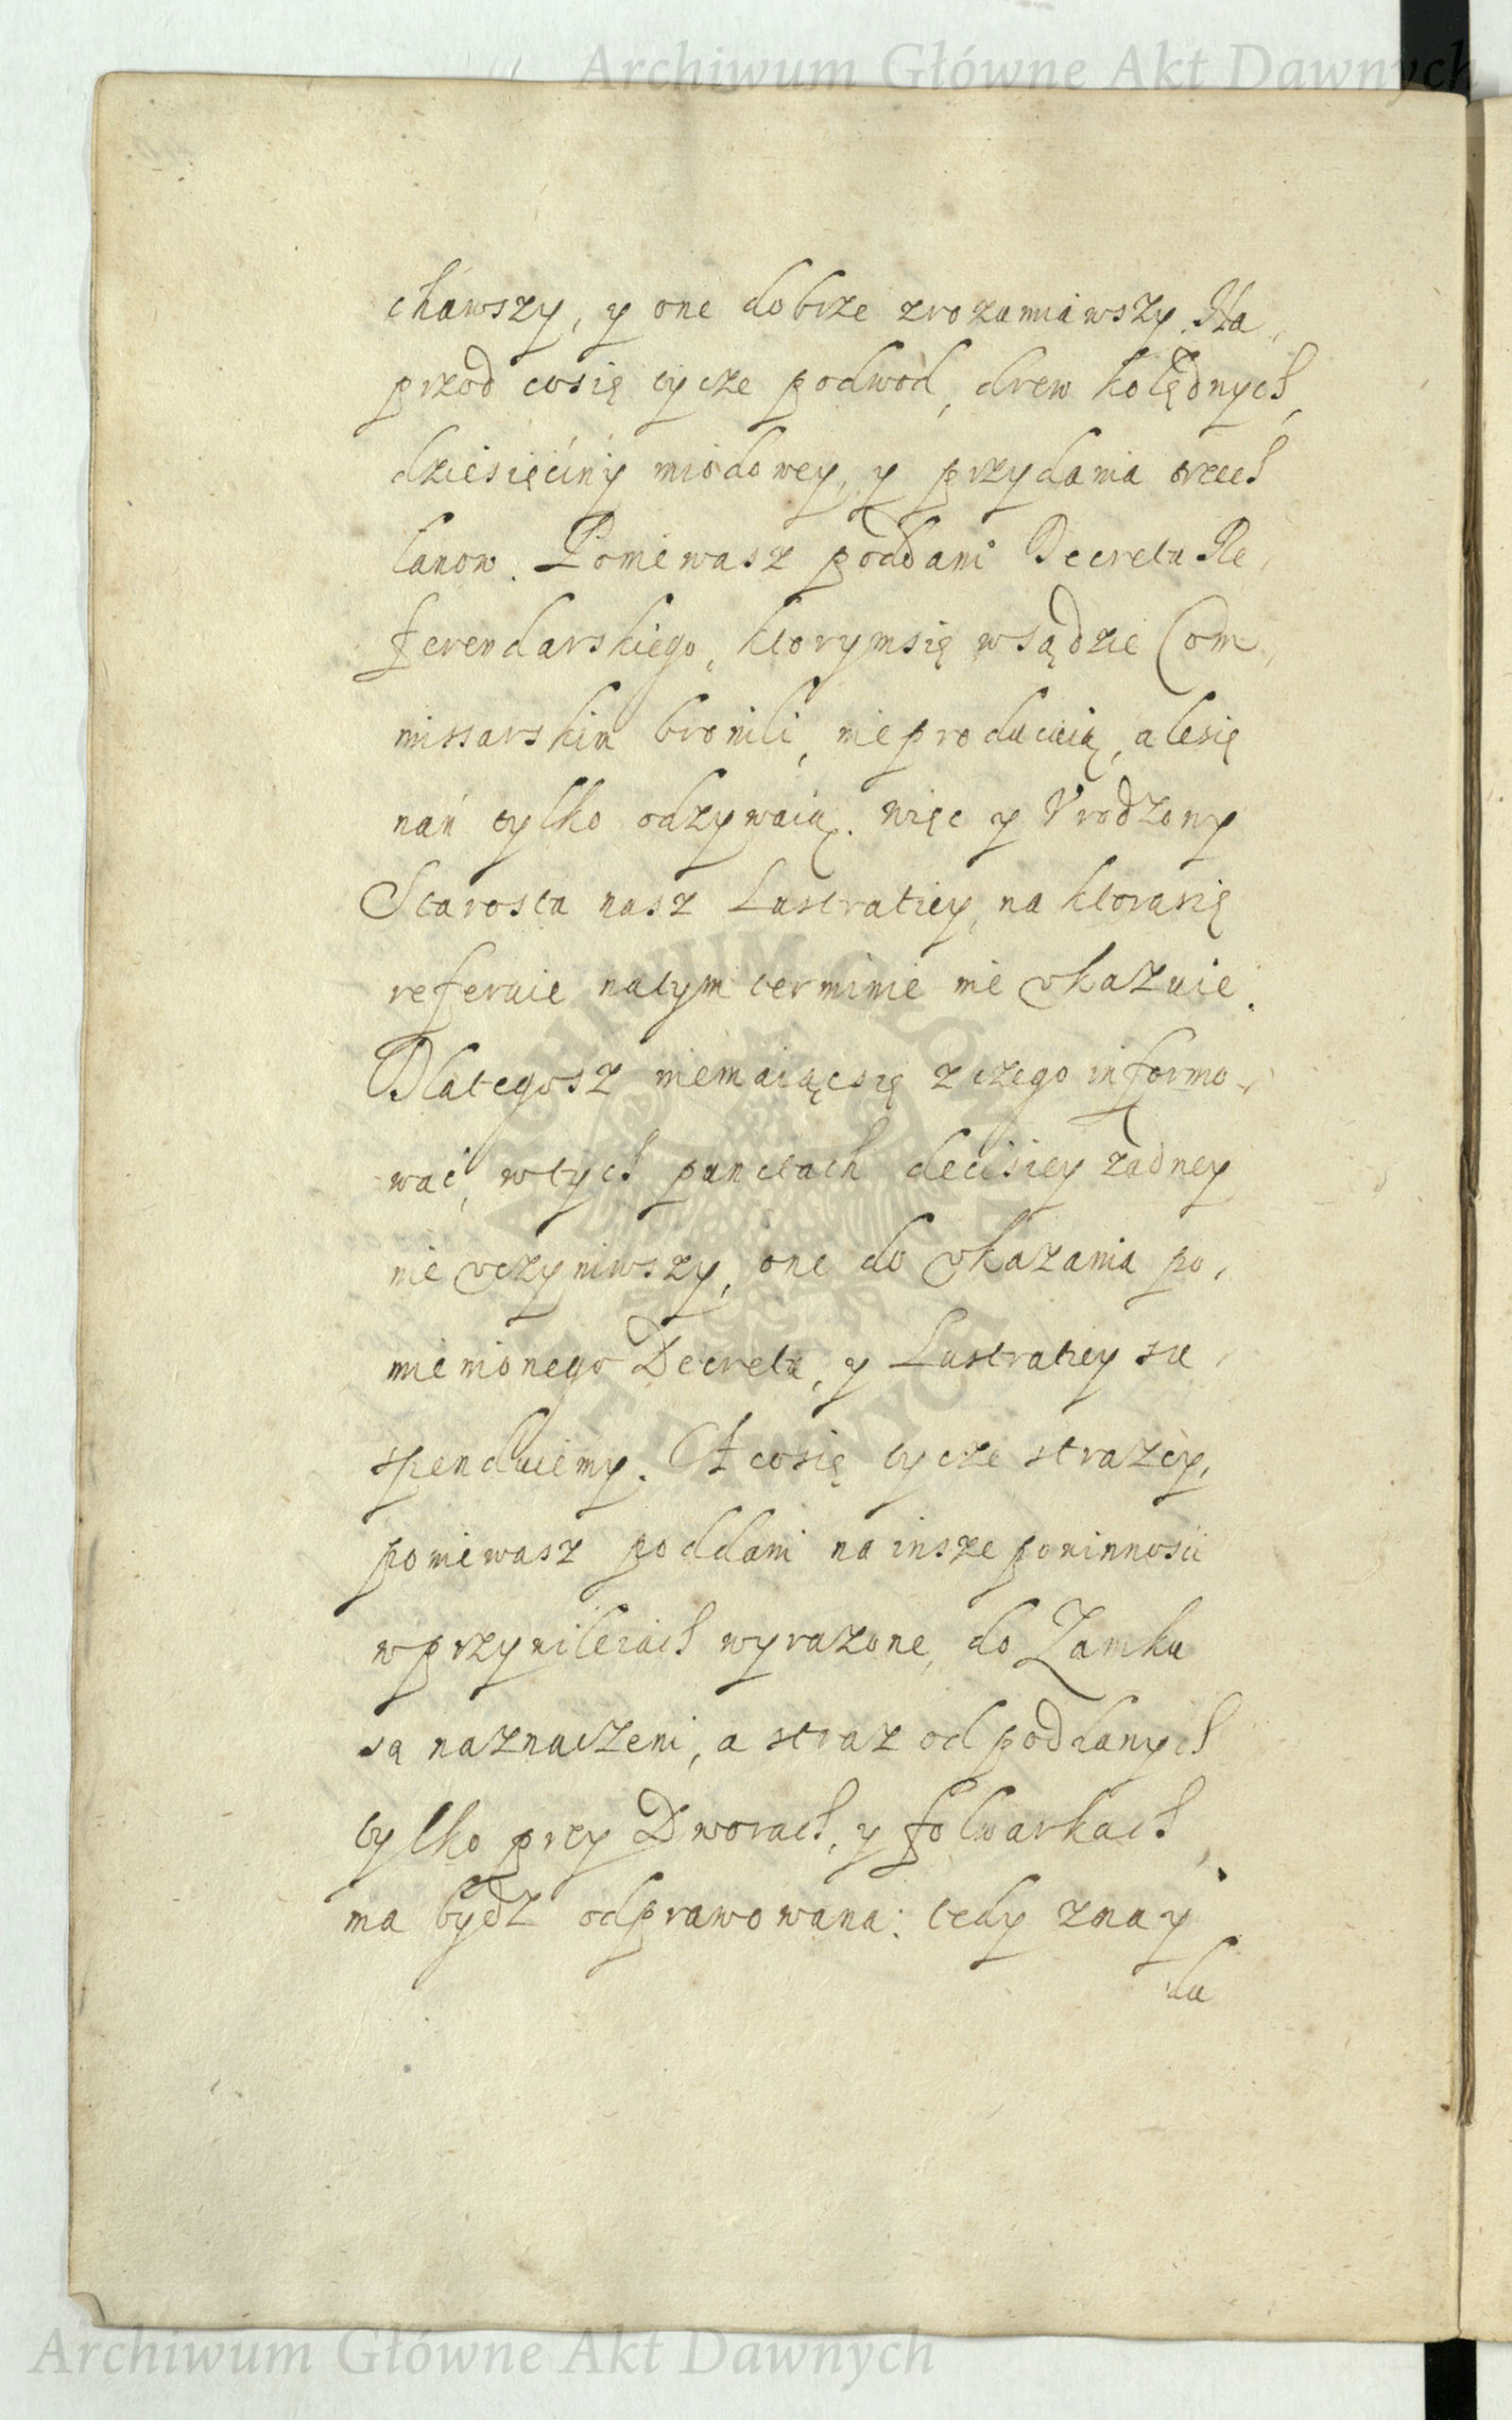 Archiwum Główne Akt Dawnych
chawszy, y one dobrze zrozumiawszy. Na,
przod cosię tycze podwod, drew kolędnych,
dziesięciny miodowey, y przydania trzech
łanow. Poniewasz poddani Decretu Re,
ferendarskiego, ktorymsię wsądzie Com,
missarskim bronili, nieproducuią, alesię
nań tylko odzywaią. więc y Vrodzony
Starosta nasz Lustratiey, na ktorąsię
referuie natym terminie nie vkazuie.
Dlategosz niemaiącsię zczego informo,
wać, wtych punctach decisiey zadney
nie vczyniwszy, one do vkazania po,
mienionego Decretu, y Lustratiey su,
spenduiemy. A cosię tycze strazey,
poniewasz poddani na insze powinnosci
wprzywileiach wyrazone, do Zamku
są naznaczeni, a straz od poddanych
tylko przy Dworach, y folwarkach,
ma bydz odprawowana: tedy znay
du
ARCHIWUM GŁÓWNE AKT DAWNYCH
Archiwum Główne Akt Dawnych